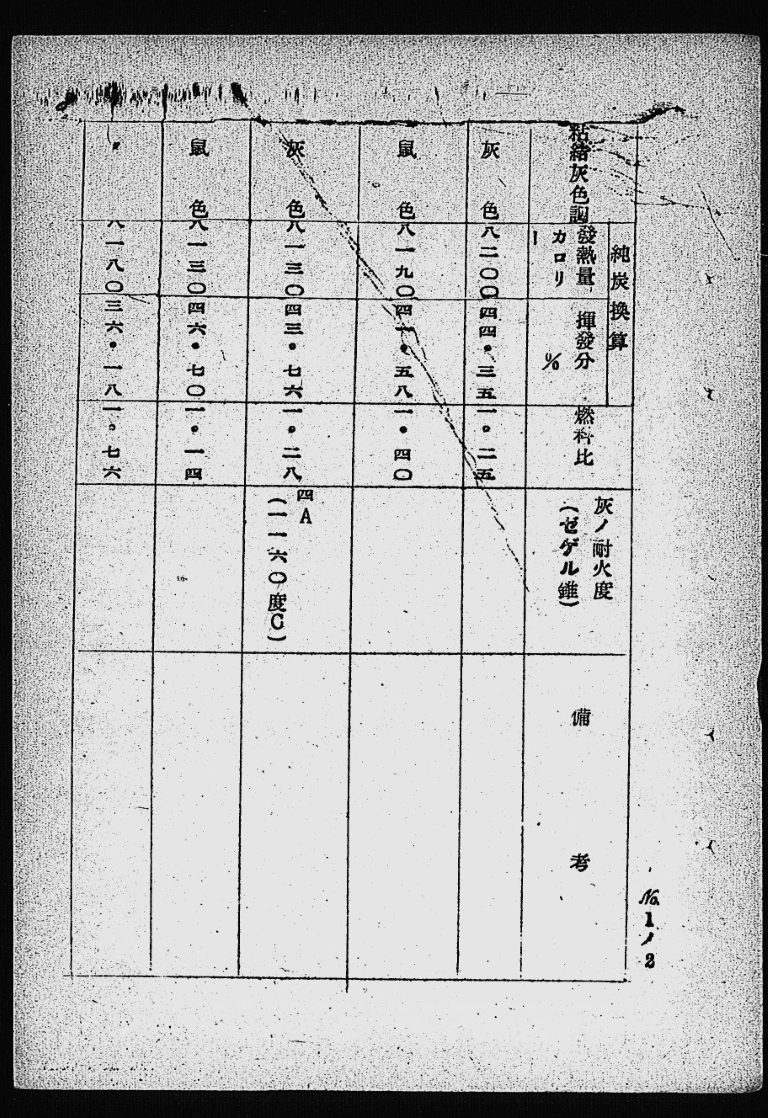 No. 1ノ2
純炭換算
粘結灰色調
發熱量
カロリー
揮發分
%
燃料比
灰ノ耐火度
(ゼゲル錐)
備考
灰色 八二〇〇 四四・三五 一。二五
鼠色 八一九〇 四一・五八 一・四〇
灰色 八一三〇 四三・七六 一。二八 四A
(一一六〇度C)
鼠色 八一三〇 四六・七〇 一・一四
〃 八一八〇 三六・一八 一。七六